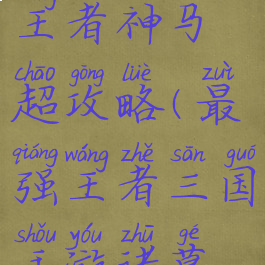 王者神马
chāo gōng lüè zuì
超攻略(最
qiáng wáng zhě sān guó
强王者三国
shǒu yóu zhū gé